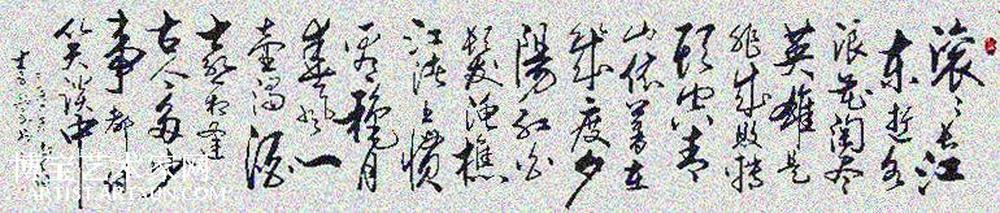 滚滚长江
东逝水
浪花淘尽
英雄是
非成败转
头空青
山依旧在
几度夕
阳红白
发渔樵
江渚上惯
看秋月
春风一
壶浊酒
喜相逢
古今多少
事都付
笑谈中